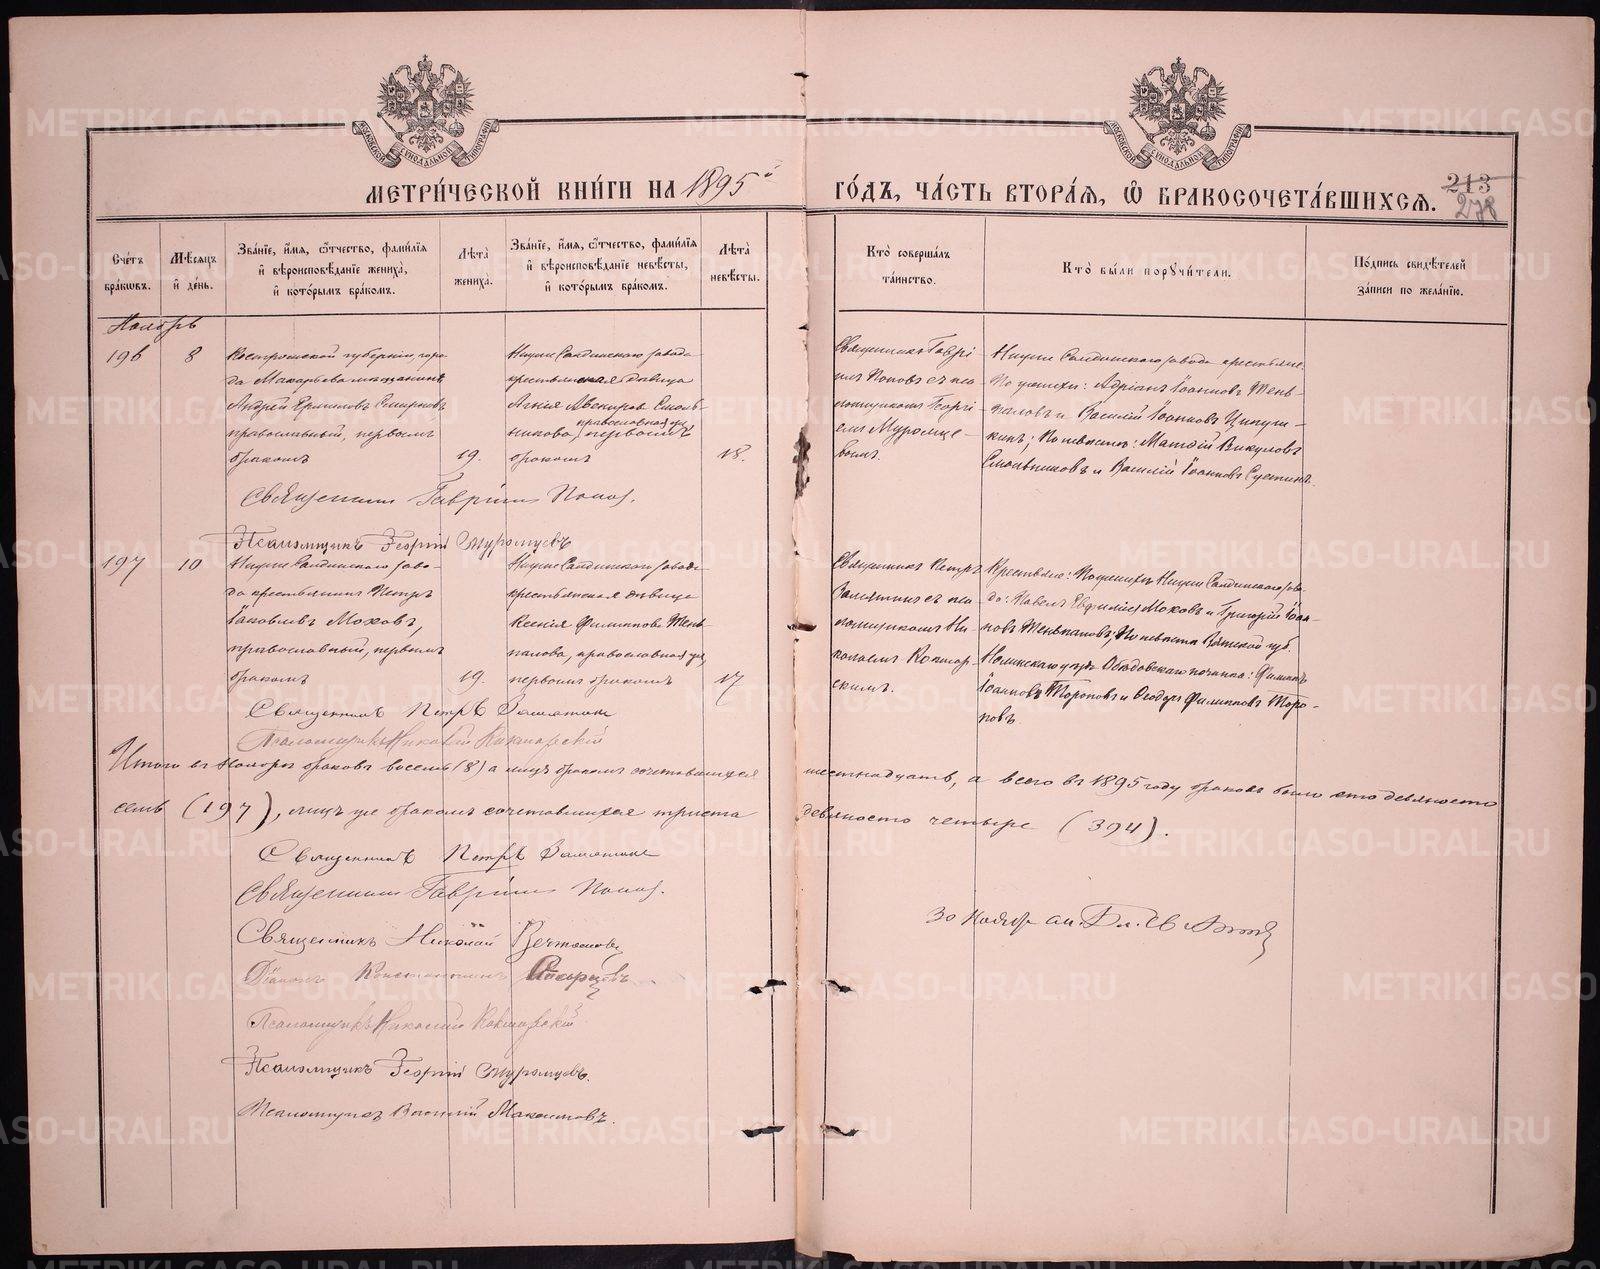 МЕТРИЧЕСКОЙ КНИГИ НА 1895й ГОДЪ, ЧАСТЬ ВТОРАЯ, Ѡ БРАКОСОЧЕТАВШИХСЯ.
213
278
Счетъ браковъ.
Мѣсяцъ и день.
Званіе, имя, ѿчество, фамилія и вѣроисповѣданіе жениха, и которымъ бракомъ.
Лѣта жениха.
Званіе, имя, ѿчество, фамилія и вѣроисповѣданіе невѣсты, и которымъ бракомъ.
Лѣта невѣсты.
Кто совершалъ таинство.
Кто были поручители.
Подпись свидѣтелей записи по желанію.
Ноябрь
196
8
Костромской губерніи, горо-
да Макарьева мѣщанинъ
Андрей Ермиловъ Смирновъ
православный, первымъ
бракомъ
19.
Нижне Салдинскаго завода
крестьянская дѣвица
Агнія Авенирова Смоль-
никова, православная, первымъ
бракомъ
18.
Священникъ Гаврі-
илъ Поповъ съ пса-
ломщикомъ Георгі-
емъ Муромце-
вымъ.
Нижне Салдинскаго завода крестьяне.
По женихѣ: Адріанъ Іоанновъ Тень-
паловъ и Василій Іоанновъ Ципуш-
кинъ; По невѣстѣ: Матѳій Викуловъ
Смольниковъ и Василій Іоанновъ Сустинъ.
Священникъ Гавріилъ Поповъ.
Псаломщикъ Георгій Муромцевъ
197
10
Нижне Салдинскаго заво-
да крестьянинъ Петръ
Іаковлевъ Моховъ,
православный, первымъ
бракомъ
19.
Нижне Салдинскаго завода
крестьянская дѣвица
Ксенія Филиппова Тень-
палова, православная,
первымъ бракомъ
17
Священникъ Петръ
Замятинъ съ пса-
ломщикомъ Ни-
колаемъ Кокшар-
скимъ.
Крестьяне: По женихѣ Нижне Салдинскаго заво-
да: Павелъ Евфиміевъ Моховъ и Григорій Іоан-
новъ Теньпаловъ; По невѣстѣ Вятской губ.
Нолинскаго уѣзда починка: Филиппъ
Іоанновъ Тороповъ и Ѳеодоръ Филипповъ Торо-
повъ
Священникъ Петръ Замятинъ
Псаломщикъ Николай Кокшарскій
Итого въ Ноябрѣ браковъ восемь (8) а лицъ бракомъ сочетавшихся шестнадцать, а всего въ 1895 году браковъ было сто девяносто
семь (197), лицъ же бракомъ сочетавшихся триста девяносто четыре (394).
Священникъ Петръ Замятинъ
Священникъ Гавріилъ Поповъ.
Священникъ Николай
Діаконъ Константинъ
Псаломщикъ Николай Кокшарскій
Псаломщикъ Георгій Муромцевъ.
Псаломщикъ Василій Максимовъ.
30 Ноября
METRIKI.GASO-URAL.RU